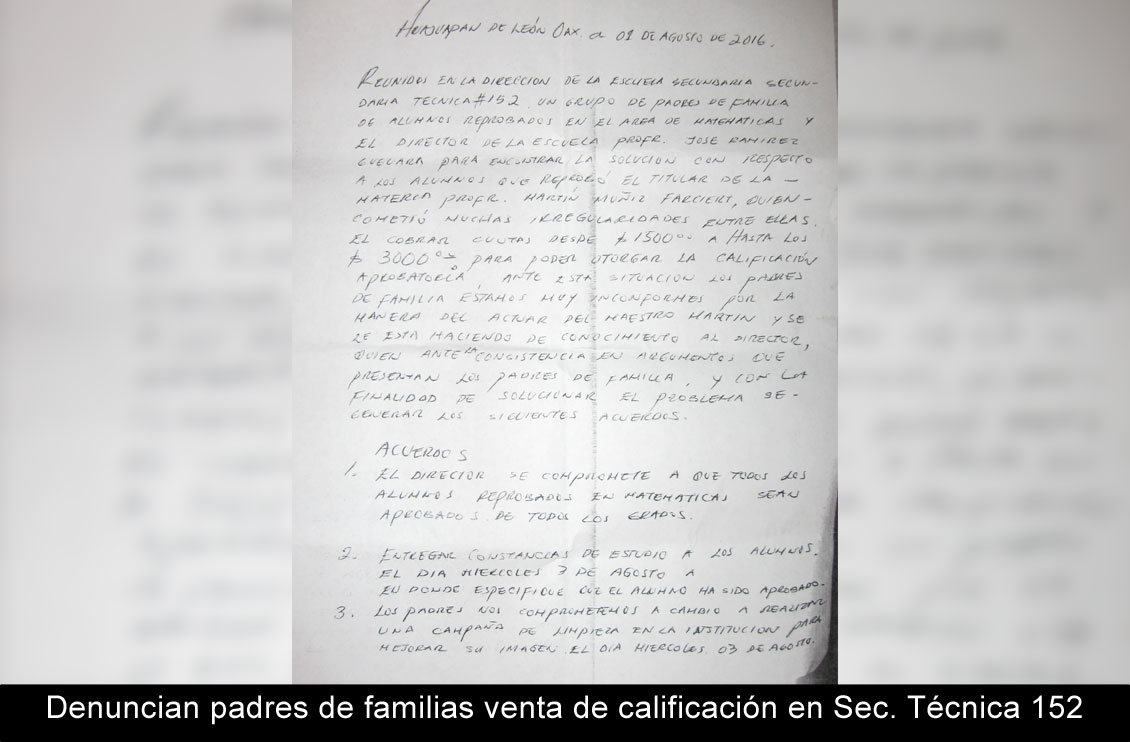 HUAJUAPAN DE LEÓN OAX. a 01 DE AGOSTO DE 2016.
REUNIDOS EN LA DIRECCION DE LA ESCUELA SECUNDARIA SECUN-
DARIA TECNICA #152 UN GRUPO DE PADRES DE FAMILIA
DE ALUMNOS REPROBADOS EN EL AREA DE MATEMATICAS Y
EL DIRECTOR DE LA ESCUELA PROFR. JOSE RAMIREZ
GUEVARA PARA ENCONTRAR LA SOLUCION CON RESPECTO
A LOS ALUMNOS QUE REPROBÓ EL TITULAR DE LA —
MATERIA PROFR. MARTÍN MUÑIZ FARCIERT, QUIEN-
COMETIÓ MUCHAS IRREGULARIDADES ENTRE ELLAS.
EL COBRAR CUOTAS DESDE $1500.00 A HASTA LOS
$ 3000.00 PARA PODER OTORGAR LA CALIFICACIÓN
APROBATORIA, ANTE ESTA SITUACION LOS PADRES
DE FAMILIA ESTAMOS MUY INCONFORMES POR LA
MANERA DEL ACTUAR DEL MAESTRO MARTIN Y SE
LE ESTA HACIENDO DE CONOCIMIENTO AL DIRECTOR,
QUIEN ANTE LA CONSISTENCIA EN ARGUMENTOS QUE
PRESENTAN LOS PADRES DE FAMILIA, Y CON LA
FINALIDAD DE SOLUCIONAR EL PROBLEMA SE-
GENERAR LOS SIGUIENTES ACUERDOS.
ACUERDOS
1. EL DIRECTOR SE COMPROMETE A QUE TODOS LOS
ALUMNOS REPROBADOS EN MATEMATICAS SEAN
APROBADOS. DE TODOS LOS GRADOS.
2. ENTREGAR CONSTANCIAS DE ESTUDIO A LOS ALUMNOS.
EL DIA MIERCOLES 3 DE AGOSTO A
EN DONDE ESPECIFIQUE QUE EL ALUMNO HA SIDO APROBADO.
3. LOS PADRES NOS COMPROMETEMOS A CAMBIO A REALIZAR
UNA CAMPAÑA DE LIMPIEZA EN LA INSTITUCION PARA
MEJORAR SU IMAGEN EL DIA MIERCOLES 03 DE AGOSTO.
Denuncian padres de familias venta de calificación en Sec. Técnica 152